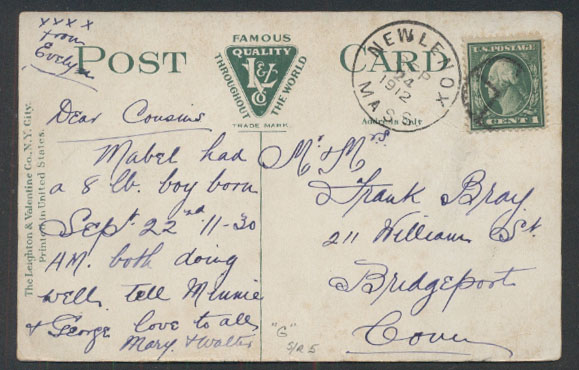 xxxx
from
Evelyn
POST
FAMOUS
QUALITY
L&V
CO
THROUGHOUT
THE WORLD
TRADE MARK.
CARD
Address Only
NEW LENOX
24 P
1912
MASS.
U.S. POSTAGE
CENT 1
The Leighton & Valentine Co., N.Y. City.
Printed in United States.
Dear Cousins
Mabel had
a 8 lb. boy born
Sept 22nd 11-30
AM. both doing
well. tell Minnie
& George love to all
Mary & Walter
Mr & Mrs
Frank Bray
211 William St.
Bridgeport
Conn
"G"